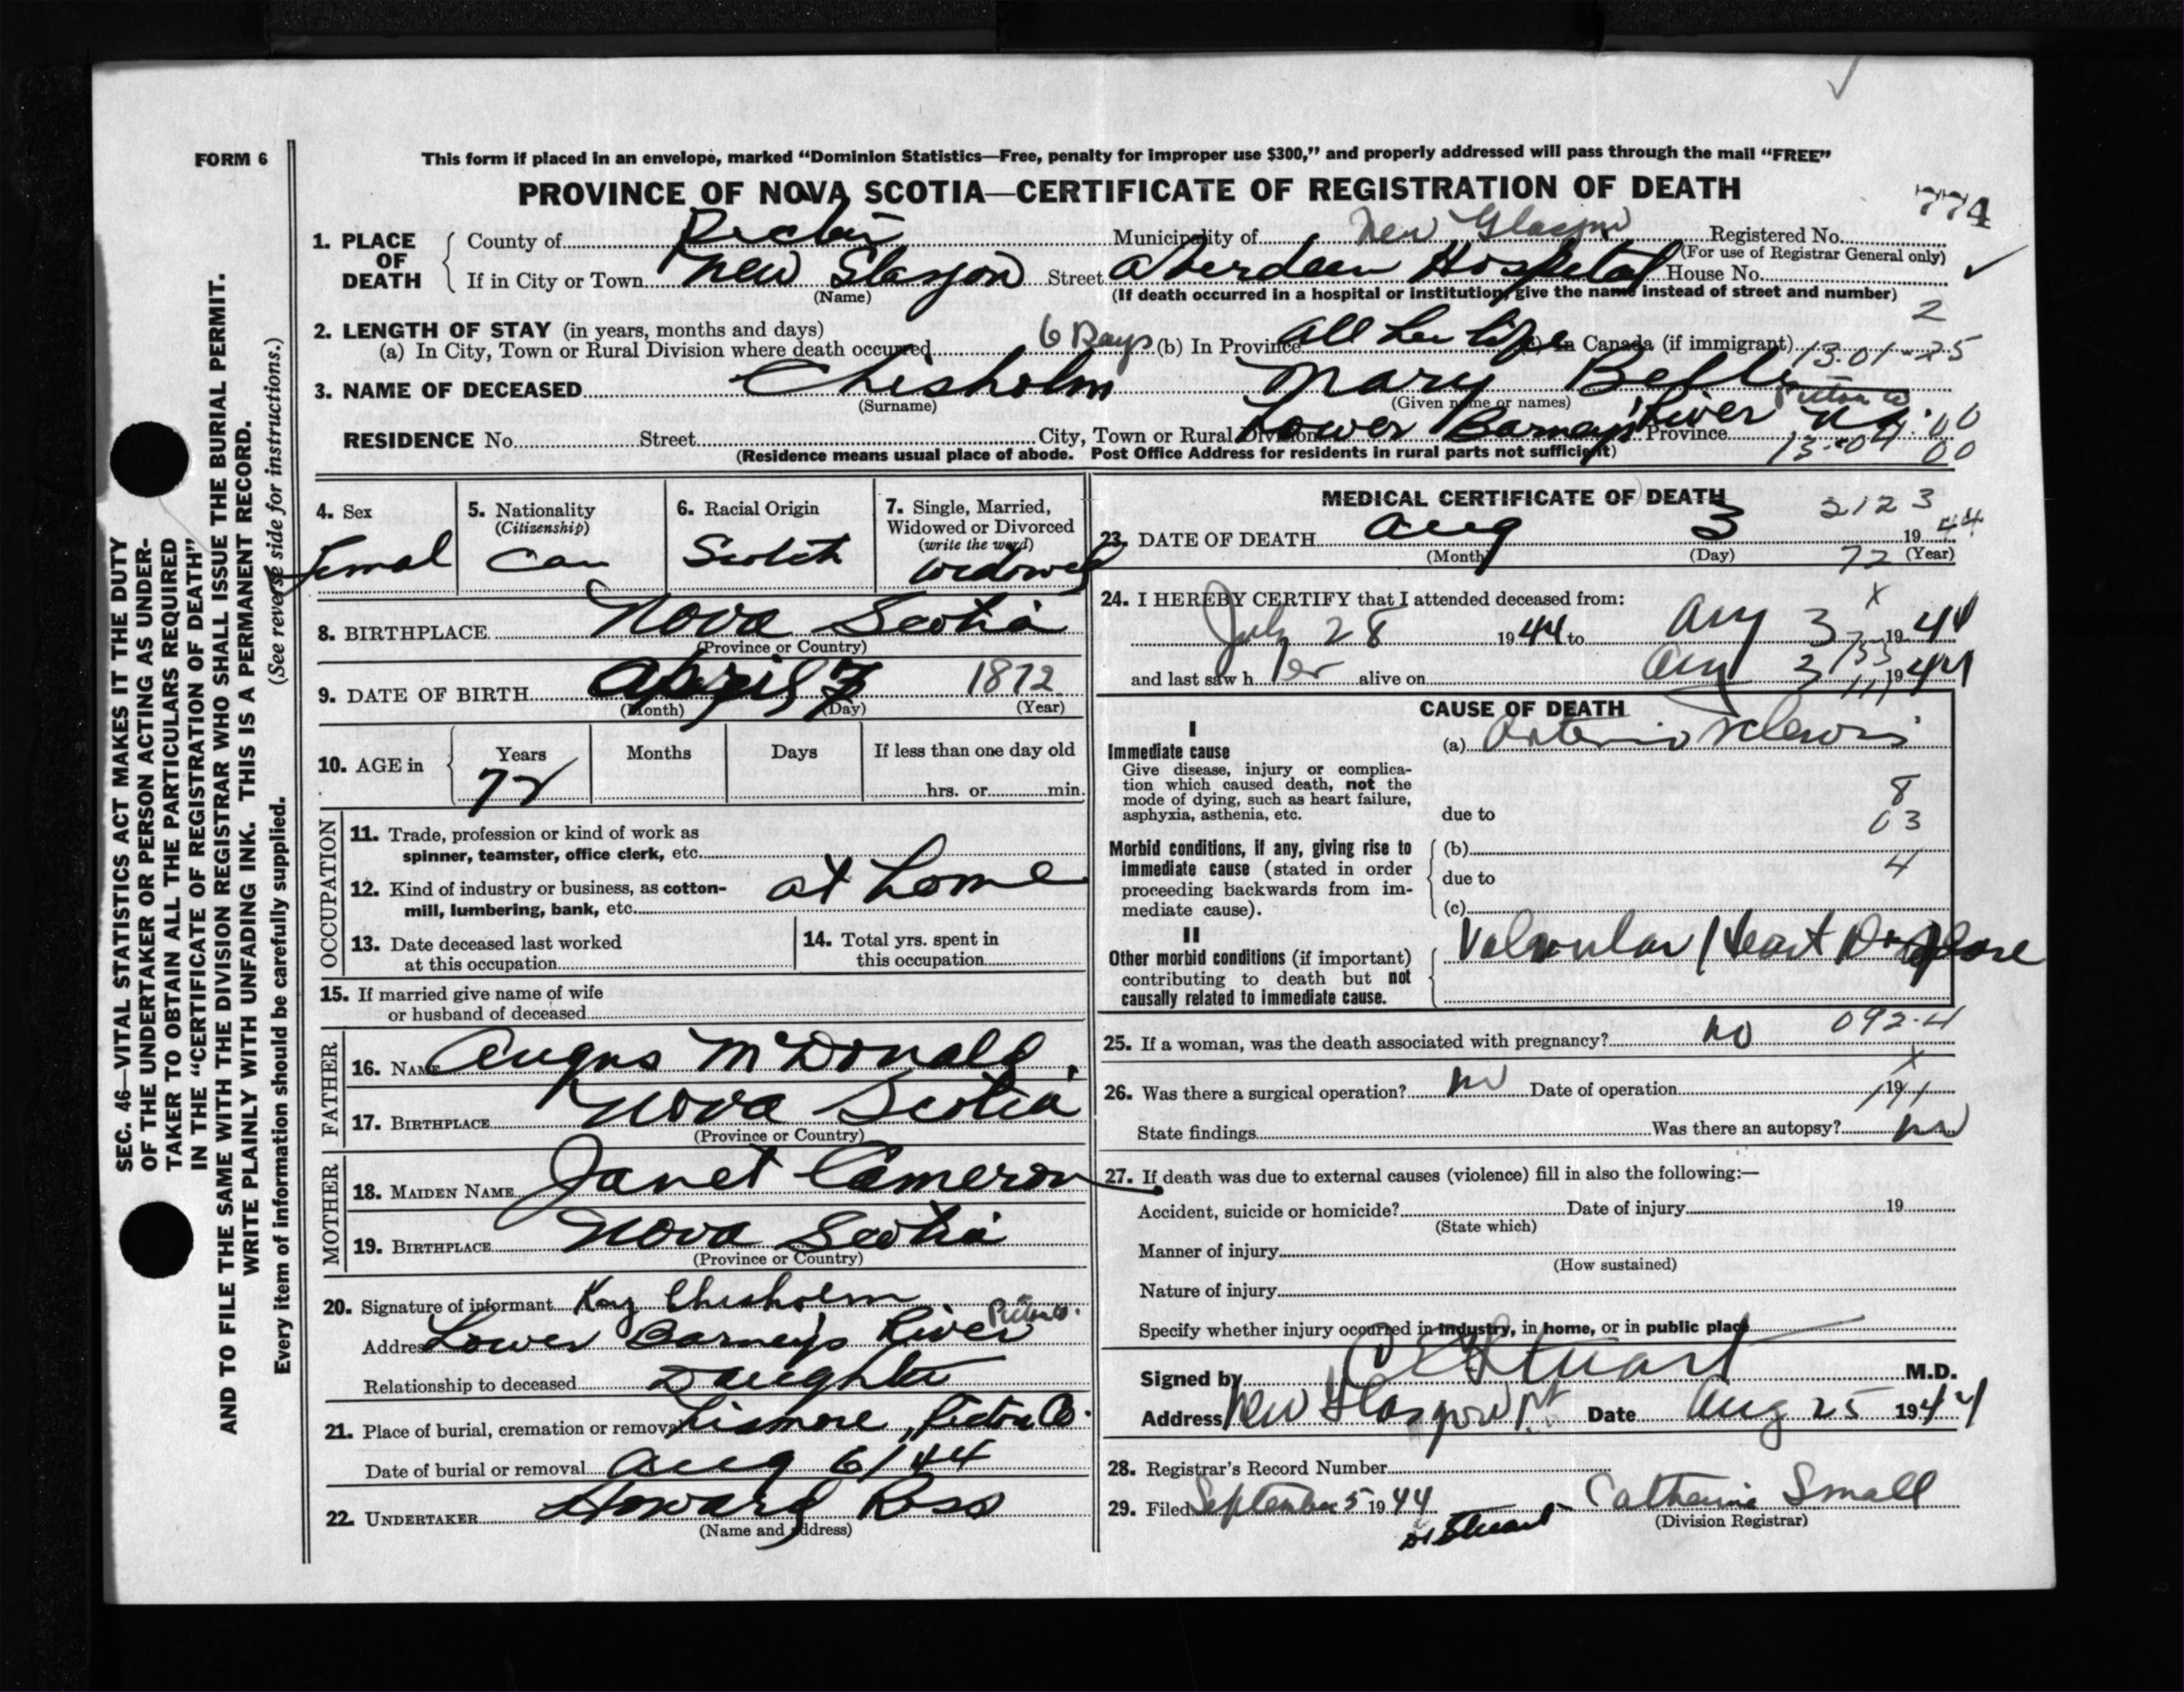 FORM 6
This form if placed in an envelope, marked “Dominion Statistics—Free, penalty for improper use $300,” and properly addressed will pass through the mail “FREE”
PROVINCE OF NOVA SCOTIA—CERTIFICATE OF REGISTRATION OF DEATH
774
1. PLACE OF DEATH County of Pictou Municipality of New Glasgow Registered No.
(For use of Registrar General only)
If in City or Town New Glasgow Street Aberdeen Hospital House No.
(Name) (If death occurred in a hospital or institution, give the name instead of street and number)
2
2. LENGTH OF STAY (in years, months and days)
(a) In City, Town or Rural Division where death occurred 6 Days (b) In Province All her life (c) In Canada (if immigrant) 13.01-25
3. NAME OF DECEASED Chisholm Mary Belle
(Surname) (Given name or names) Pictou Co
RESIDENCE No. Street City, Town or Rural Division Lower Barney's River Province N.S. 00
(Residence means usual place of abode. Post Office Address for residents in rural parts not sufficient) 13-04 00
4. Sex Femal
5. Nationality
(Citizenship)
Can
6. Racial Origin
Scotch
7. Single, Married,
Widowed or Divorced
(write the word)
Widowed
8. BIRTHPLACE Nova Scotia
(Province or Country)
9. DATE OF BIRTH April 3 1872
(Month) (Day) (Year)
10. AGE in Years Months Days If less than one day old
72 hrs. or min.
OCCUPATION
11. Trade, profession or kind of work as
spinner, teamster, office clerk, etc.
12. Kind of industry or business, as cotton- at home
mill, lumbering, bank, etc.
13. Date deceased last worked
at this occupation
14. Total yrs. spent in
this occupation
15. If married give name of wife
or husband of deceased
FATHER
16. NAME Angus McDonald
17. BIRTHPLACE Nova Scotia
(Province or Country)
MOTHER
18. MAIDEN NAME Janet Cameron
19. BIRTHPLACE Nova Scotia
(Province or Country)
20. Signature of informant Kay Chisholm
Address Lower Barney's River Pictou Co.
Relationship to deceased Daughter
21. Place of burial, cremation or removal Lismore, Pictou Co.
Date of burial or removal Aug 6/44
22. UNDERTAKER Howard Ross
(Name and address)
MEDICAL CERTIFICATE OF DEATH
2123
23. DATE OF DEATH Aug 3 1944
(Month) (Day) (Year)
72
24. I HEREBY CERTIFY that I attended deceased from: x
July 28 1944 to Aug 3 1944
and last saw her alive on Aug 3 1944
CAUSE OF DEATH
I
Immediate cause (a) Arterio Sclerosis
Give disease, injury or complica-
tion which caused death, not the
mode of dying, such as heart failure,
asphyxia, asthenia, etc.
due to
8
03
4
Morbid conditions, if any, giving rise to (b)
immediate cause (stated in order
proceeding backwards from im- due to
mediate cause). (c)
II
Other morbid conditions (if important) Valvular Heart Disease
contributing to death but not
causally related to immediate cause.
092-4
25. If a woman, was the death associated with pregnancy? no
x
26. Was there a surgical operation? no Date of operation 19
State findings Was there an autopsy? no
27. If death was due to external causes (violence) fill in also the following:—
Accident, suicide or homicide? Date of injury 19
(State which)
Manner of injury
(How sustained)
Nature of injury
Specify whether injury occurred in industry, in home, or in public place
Signed by C E Stuart M.D.
Address New Glasgow Date Aug 25 1944
28. Registrar's Record Number
29. Filed September 5 1944 Catherine Small
(Division Registrar)
Stuart
SEC. 46—VITAL STATISTICS ACT MAKES IT THE DUTY
OF THE UNDERTAKER OR PERSON ACTING AS UNDER-
TAKER TO OBTAIN ALL THE PARTICULARS REQUIRED
IN THE “CERTIFICATE OF REGISTRATION OF DEATH”
AND TO FILE THE SAME WITH THE DIVISION REGISTRAR WHO SHALL ISSUE THE BURIAL PERMIT.
WRITE PLAINLY WITH UNFADING INK. THIS IS A PERMANENT RECORD.
Every item of information should be carefully supplied. (See reverse side for instructions.)